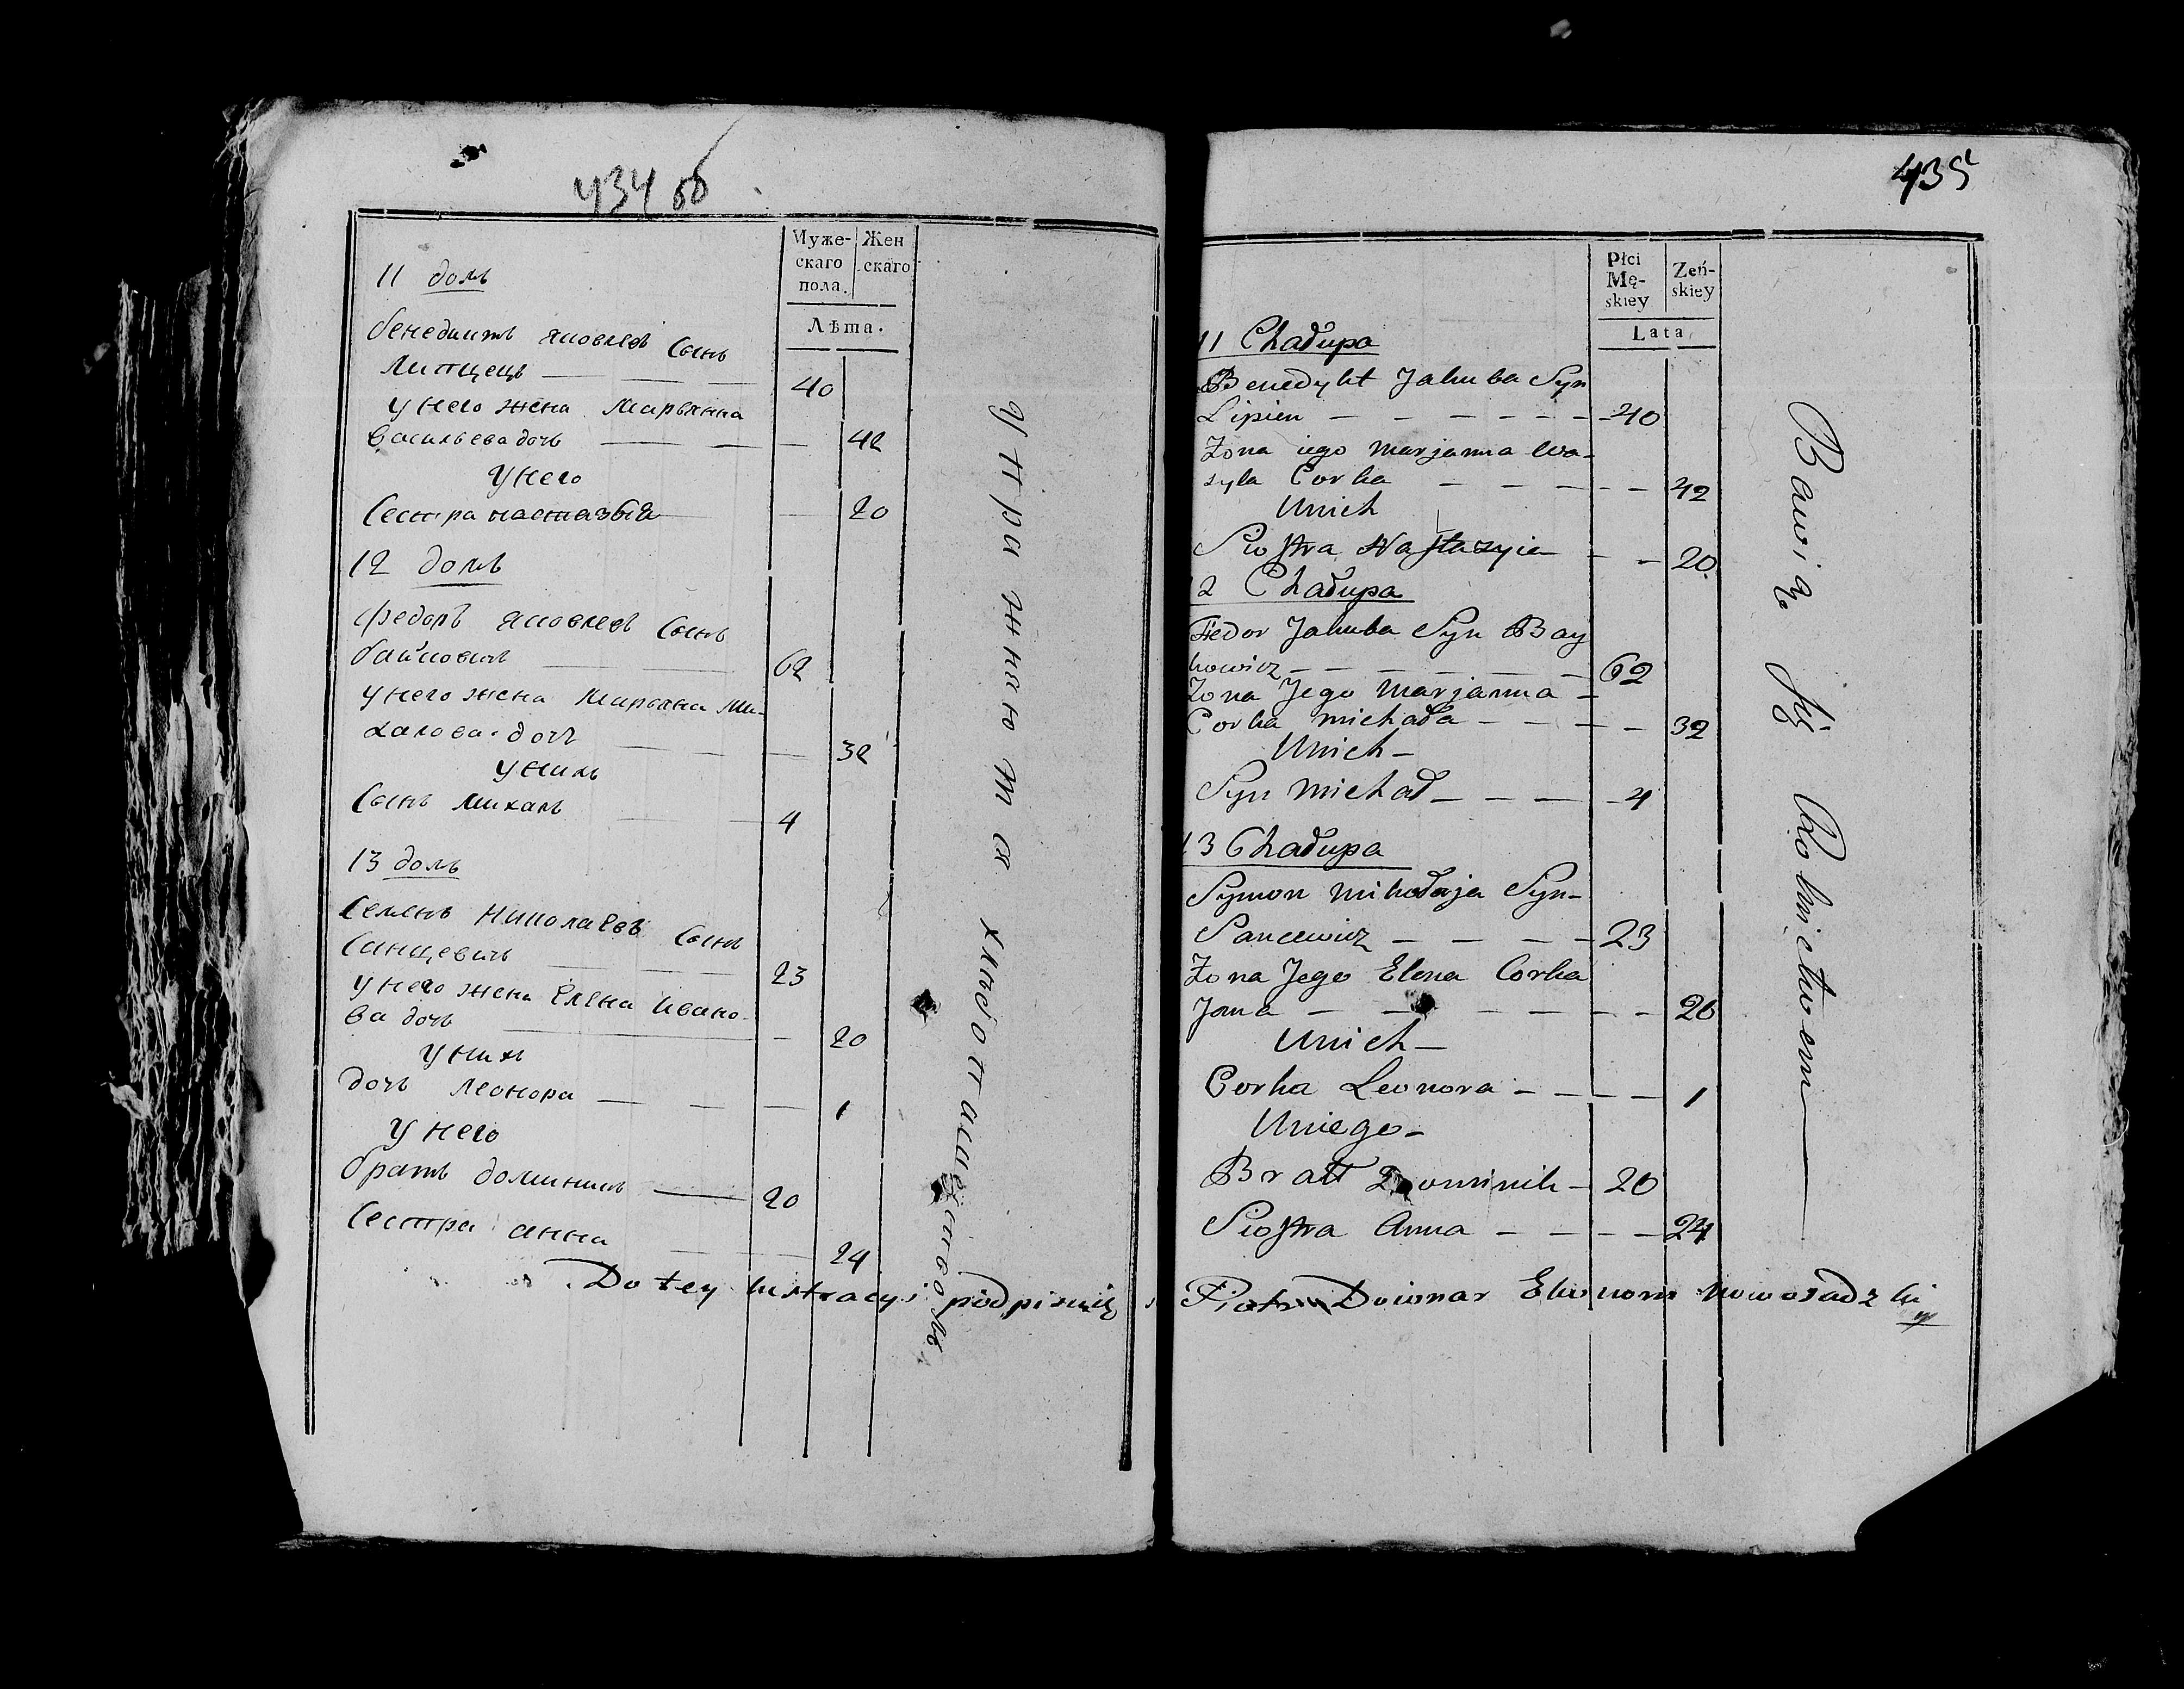 434 об
Муже-
скаго
пола.
Жен
скаго
Лѣта.
11 домъ
бенедиктъ яковлевъ Сынъ
Липпецъ — — — 40
у него жена Марьянна
васильева дочь — — — 42
У него
Сестра настазыа — 20
12 домъ
федоръ яковлевъ Сынъ
байковичъ — — 62
у него жена Марьяна Ми-
халова дочь — — 32
У нихъ
Сынъ михалъ — — 4
13 домъ
Семенъ Николаевъ Сынъ
Санцевичъ — — — 23
у него жена Елена Ивано-
ва дочь — — 20
у нихъ
дочь Леонора — — — 1
У него
братъ доминикъ — 20
Сестра анна — — — 24
Упражняются хлебопашествомъ
435
Płci
Mę-
skiey
Zeń-
skiey
Lata
11 Chałupa
Benedykt Jakuba Syn
Lipien — — — — — — 40
Zona iego Marjanna Wa-
syla Corka — — — — — 42
Unich
Siostra Nastazyia — — 20
12 Chałupa
Fiedor Jakuba Syn Bay
kowicz — — — — — 62
Zona Jego Marjanna —
Corka michała — — — — 32
Unich —
Syn Michał — — — — 4
13 Chałupa
Symon mikołaja Syn —
Sancewicz — — — — 23
Zona Jego Elena Corka
Jana — — — — — — 20
Unich —
Corka Leonora — — — — 1
Uniego —
Bratt Dominik — 20
Siostra Anna — — — — 24
Bawią się Rolnictwem
Do tey lustracyi podpisuię s Piotr Downar Ekonom Nowosadzki